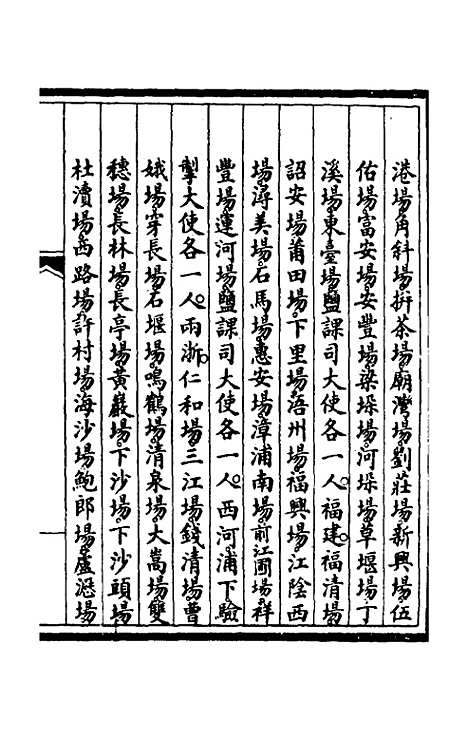 港場角斜場拼茶場廟灣場劉莊場新興場伍
佑場富安場安豐場梁垛場河垛場草堰場丁
溪場東臺場鹽課司大使各一人福建福清場
詔安場莆田場下里場浯州場福興場江陰西
場潯美場石馬場惠安場漳浦南場前江團場祥
豐場蓮河場鹽課司大使各一人西河浦下驗
掣大使各一人兩浙仁和場三江場錢清場曹
娥場穿長場石堰場鳴鶴場清泉場大嵩場雙
穗場長林場長亭場黃巖場下沙場下沙頭場
杜瀆場西路場許村場海沙場鮑郎場盧瀝場